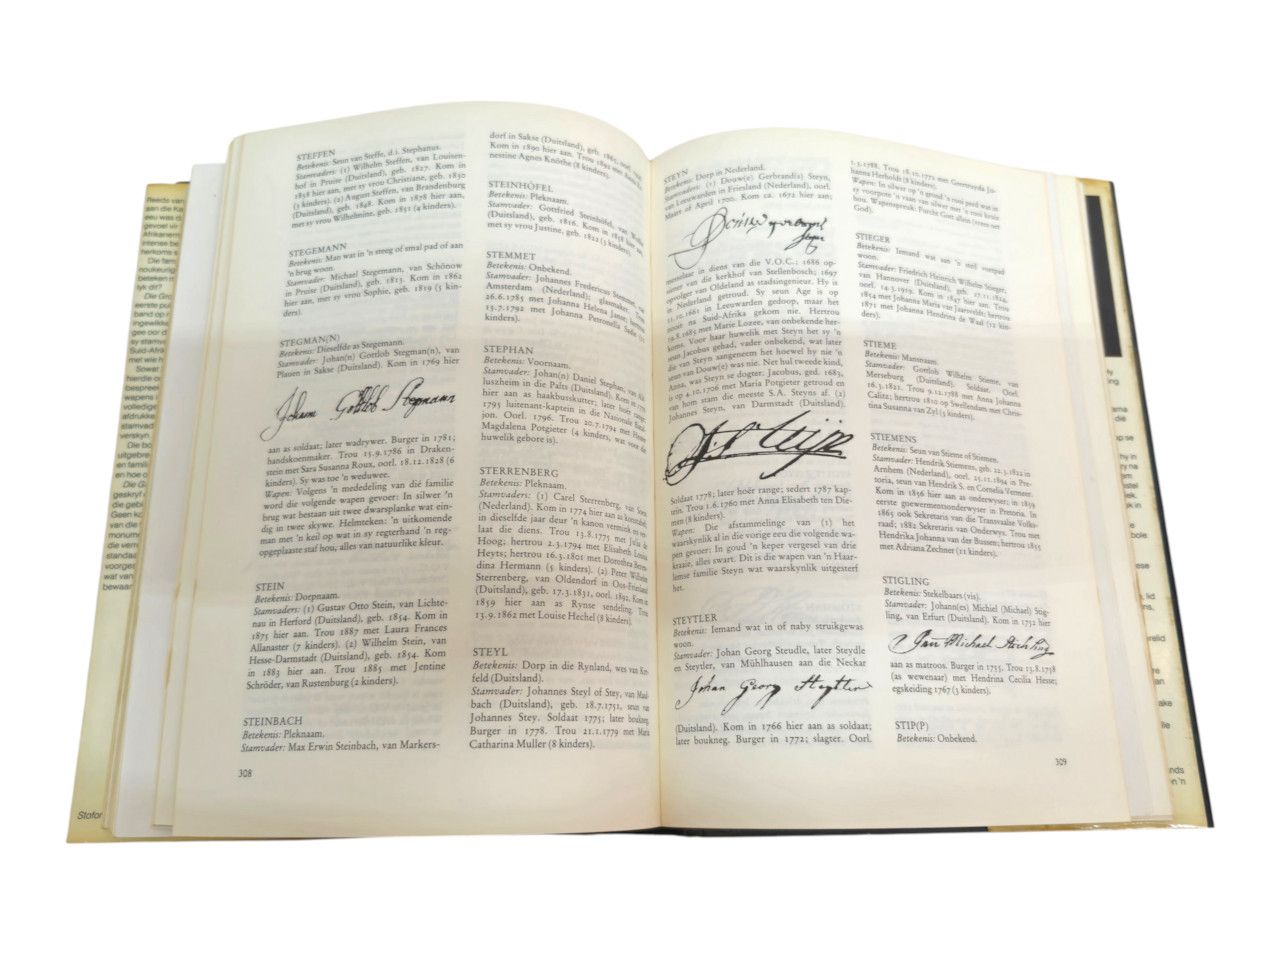 STEFFEN
Betekenis: Seun van Steffe, d.i. Stephanus.
Stamvaders: (1) Wilhelm Steffen, van Louisen-
hof in Pruise (Duitsland), geb. 1827. Kom in
1858 hier aan, met sy vrou Christiane, geb. 1830
(3 kinders). (2) August Steffen, van Brandenburg
(Duitsland), geb. 1848. Kom in 1878 hier aan,
met sy vrou Wilhelmine, geb. 1851 (4 kinders).
STEGEMANN
Betekenis: Man wat in 'n steeg of smal pad of aan
'n brug woon.
Stamvader: Michael Stegemann, van Schönow
in Pruise (Duitsland), geb. 1815. Kom in 1862
hier aan, met sy vrou Sophie, geb. 1819 (3 kin-
ders).
STEGMAN(N)
Betekenis: Dieselfde as Stegemann.
Stamvader: Johan(n) Gottlob Stegman(n), van
Plauen in Sakse (Duitsland). Kom in 1769 hier
Johann Gottlob Stegmann
aan as soldaat; later wadrywer. Burger in 1781;
handskoenmaker. Trou 15.9.1786 in Draken-
stein met Sara Susanna Roux, oorl. 18.12.1828 (6
kinders). Sy was toe 'n weduwee.
Wapen: Volgens 'n mededeling van dié familie
word die volgende wapen gevoer: In silwer 'n
brug wat bestaan uit twee dwarsplanke wat ein-
dig in twee skywe. Helmteken: 'n uitkomende
man met 'n keil op wat in sy regterhand 'n reg-
opgeplaaste staf hou, alles van natuurlike kleur.
STEIN
Betekenis: Dorpnaam.
Stamvaders: (1) Gustav Otto Stein, van Lichte-
nau in Herford (Duitsland), geb. 1854. Kom in
1875 hier aan. Trou 1887 met Laura Frances
Allanaster (7 kinders). (2) Wilhelm Stein, van
Hesse-Darmstadt (Duitsland), geb. 1854. Kom
in 1883 hier aan. Trou 1885 met Jentine
Schröder, van Rustenburg (2 kinders).
STEINBACH
Betekenis: Pleknaam.
Stamvader: Max Erwin Steinbach, van Markers-
308
dorf in Sakse (Duitsland), geb. 1865, oorl.
Kom in 1890 hier aan. Trou 1892 met
nestine Agnes Knöthe (8 kinders).
STEINHÖFEL
Betekenis: Pleknaam.
Stamvader: Gottfried Steinhöfel, van
(Duitsland), geb. 1816. Kom in 1858 hier aan,
met sy vrou Justine, geb. 1822 (3 kinders).
STEMMET
Betekenis: Onbekend.
Stamvader: Johannes Fredericus Stemmet, van
Amsterdam (Nederland); glasmaker. Trou
26.6.1785 met Johanna Helena Janse; hertrou
15.7.1792 met Johanna Petronella Sadie
kinders).
STEPHAN
Betekenis: Voornaam.
Stamvader: Johan(n) Daniel Stephan, van
luszheim in die Pafts (Duitsland). Kom in
hier aan as haakbusskutter; later hoër range;
1795 luitenant-kaptein in die Nationale
jon. Oorl. 1796. Trou 20.7.1794 met Hester
Magdalena Potgieter (4 kinders, wat voor die
huwelik gebore is).
STERRENBERG
Betekenis: Pleknaam.
Stamvaders: (1) Carel Sterrenberg, van
(Nederland). Kom in 1774 hier aan as konstabel;
in dieselfde jaar deur 'n kanon vermink en ver-
laat die diens. Trou 13.8.1775 met Julia de
Hoog; hertrou 2.3.1794 met Elisabeth Louisa
Heyts; hertrou 16.3.1801 met Dorothea Bern-
dina Hermann (5 kinders). (2) Peter Wilhelm
Sterrenberg, van Oldendorf in Oos-Friesland
(Duitsland), geb. 17.3.1831, oorl. 1892. Kom in
1859 hier aan as Rynse sendeling. Trou
13.9.1862 met Louise Hechel (8 kinders).
STEYL
Betekenis: Dorp in die Rynland, wes van Kre-
feld (Duitsland).
Stamvader: Johannes Steyl of Stey, van
bach (Duitsland), geb. 18.7.1751, seun van
Johannes Stey. Soldaat 1775; later boukneg.
Burger in 1778. Trou 21.1.1779 met Maria
Catharina Muller (8 kinders).
STEYN
Betekenis: Dorp in Nederland.
Stamvaders: (1) Douw(e) Gerbrand(s) Steyn,
van Leeuwarden in Friesland (Nederland), oorl.
Maart of April 1700. Kom ca. 1672 hier aan;
messelaar in diens van die V.O.C.; 1686 op-
sigter van die kerkhof van Stellenbosch; 1697
opvolger van Oldeland as stadsingenieur. Hy is
in Nederland getroud. Sy seun Age is op
11.10.1661 in Leeuwarden gedoop, maar het
nooit na Suid-Afrika gekom nie. Hertrou
19.8.1685 met Marie Lozee, van onbekende her-
koms. Voor haar huwelik met Steyn het sy 'n
seun Jacobus gehad, vader onbekend, wat later
die van Steyn aangeneem het hoewel hy nie 'n
seun van Douw(e) was nie. Net hul tweede kind,
Anna, was Steyn se dogter. Jacobus, ged. 1683,
is op 4.10.1706 met Maria Potgieter getroud en
van hom stam die meeste S.A. Steyns af. (2)
Johannes Steyn, van Darmstadt (Duitsland).
J S Steijn
Soldaat 1778; later hoër range; sedert 1787 kap-
tein. Trou 1.6.1760 met Anna Elisabeth ten Die-
men (8 kinders).
Wapen: Die afstammelinge van (1) het
waarskynlik al in die vorige eeu die volgende wa-
pen gevoer: In goud 'n keper vergesel van drie
kraaie, alles swart. Dit is die wapen van 'n Haar-
lemse familie Steyn wat waarskynlik uitgesterf
het.
STEYTLER
Betekenis: Iemand wat in of naby struikgewas
woon.
Stamvader: Johan Georg Steudle, later Steydle
en Steytler, van Mühlhausen aan die Neckar
Johan Georg Steytler
(Duitsland). Kom in 1766 hier aan as soldaat;
later boukneg. Burger in 1772; slagter. Oorl.
1.3.1788. Trou 18.10.1772 met Geertruyda Jo-
hanna Herholdt (8 kinders).
Wapen: In silwer op 'n grond 'n rooi perd wat in
sy voorpote 'n vaas van silwer met 'n rooi krole
hou. Wapenspreuk: Furcht Gott allein (vrees net
God).
STIEGER
Betekenis: Iemand wat aan 'n steil voetpad
woon.
Stamvader: Friedrich Heinrich Wilhelm Stieger,
van Hannover (Duitsland), geb. 27.11.1824,
oorl. 14.3.1919. Kom in 1847 hier aan. Trou
1854 met Johanna Maria van Jaarsveldt; hertrou
1871 met Johanna Hendrina de Waal (12 kin-
ders).
STIEME
Betekenis: Mansnaam.
Stamvader: Gottlob Wilhelm Stieme, van
Merseburg (Duitsland). Soldaat. Oorl.
16.3.1821. Trou 9.12.1788 met Anna Johanna
Calitz; hertrou 1810 op Swellendam met Chris-
tina Susanna van Zyl (5 kinders).
STIEMENS
Betekenis: Seun van Stieme of Stiemen.
Stamvader: Hendrik Stiemens, geb. 12.3.1822 in
Arnhem (Nederland), oorl. 25.11.1894 in Pre-
toria, seun van Hendrik S. en Cornelia Vermeer.
Kom in 1856 hier aan as onderwyser; in 1859
eerste goewermentsonderwyser in Pretoria. In
1865 ook Sekretaris van die Transvaalse Volks-
raad; 1882 Sekretaris van Onderwys. Trou met
Hendrika Johanna van der Bussen; hertrou 1855
met Adriana Zechner (11 kinders).
STIGLING
Betekenis: Stekelbaars (vis).
Stamvader: Johann(es) Michiel (Michael) Stig-
ling, van Erfurt (Duitsland). Kom in 1752 hier
Jan Michael Stichling
aan as matroos. Burger in 1755. Trou 15.8.1758
(as wewenaar) met Hendrina Cecilia Hesse;
egskeiding 1767 (3 kinders).
STIP(P)
Betekenis: Onbekend.
309